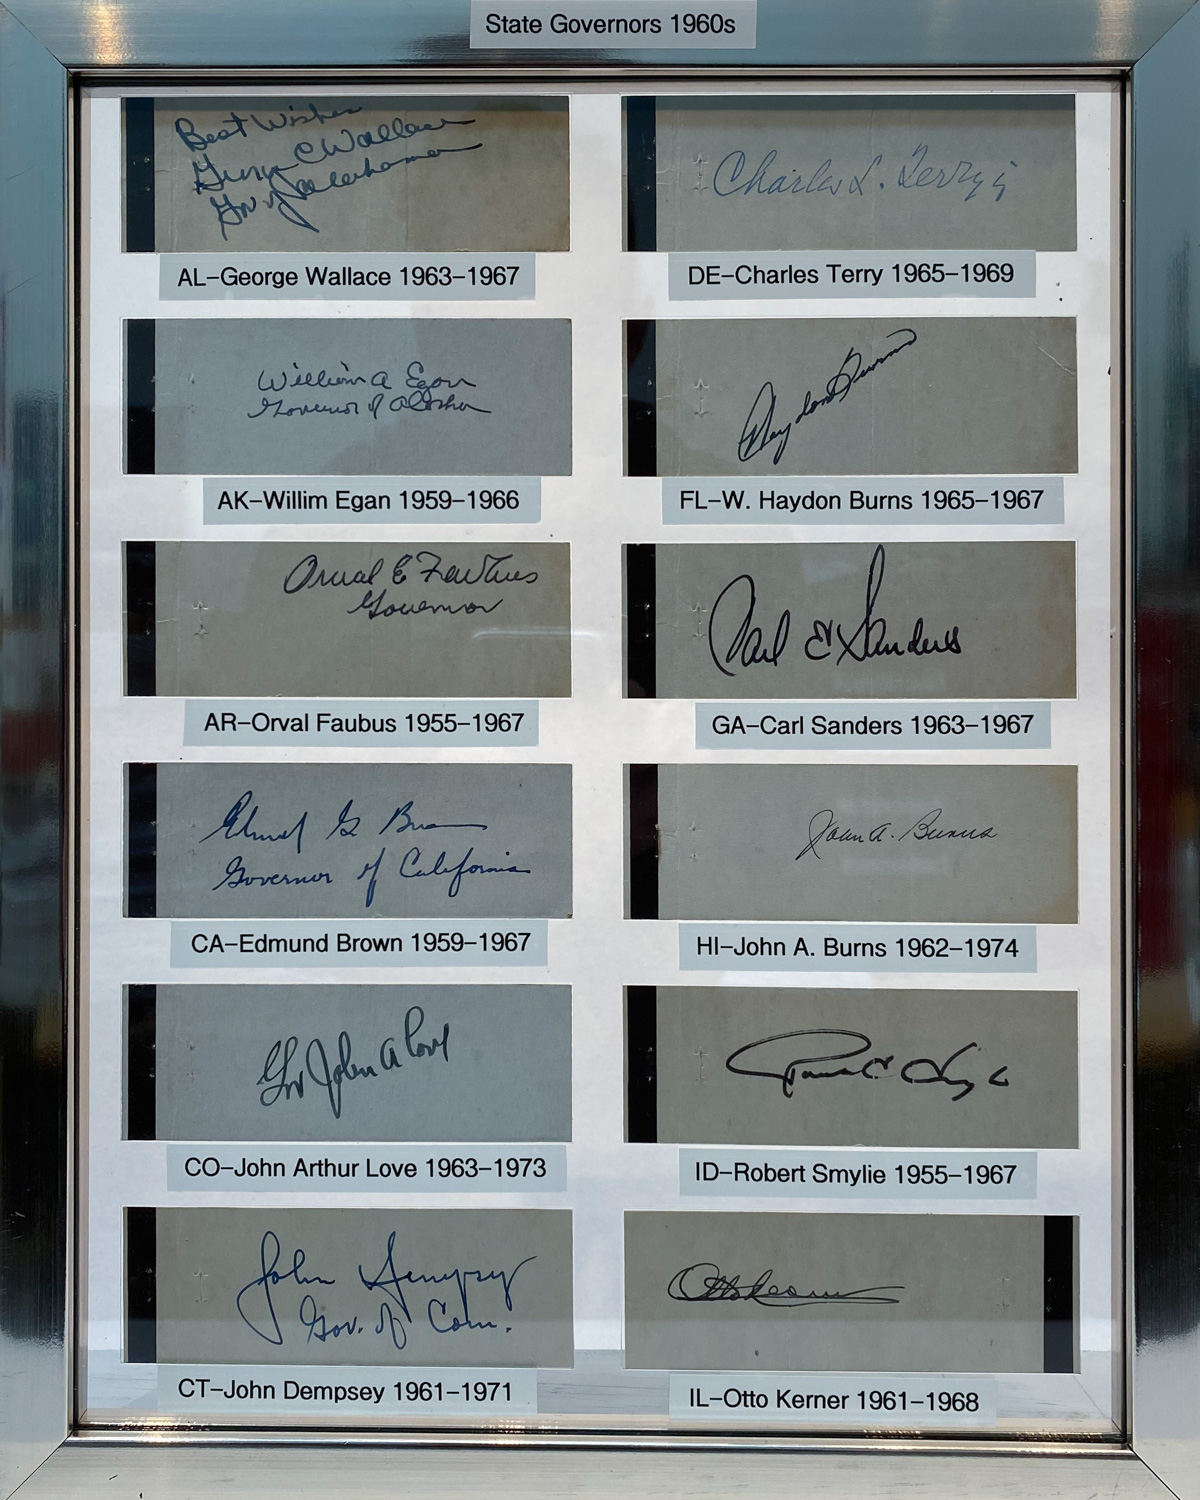 State Governors 1960s
Best Wishes
George C Wallace
Gov of Alabama
AL–George Wallace 1963–1967
William A Egan
Governor of Alaska
AK–Willim Egan 1959–1966
Orval E Faubus
Governor
AR–Orval Faubus 1955–1967
Edmund G Brown
Governor of California
CA–Edmund Brown 1959–1967
Gov John A Love
CO–John Arthur Love 1963–1973
John Dempsey
Gov. of Conn.
CT–John Dempsey 1961–1971
Charles L. Terry, Jr
DE–Charles Terry 1965–1969
Haydon Burns
FL–W. Haydon Burns 1965–1967
Carl E Sanders
GA–Carl Sanders 1963–1967
John A. Burns
HI–John A. Burns 1962–1974
Robert E Smylie
ID–Robert Smylie 1955–1967
Otto Kerner
IL–Otto Kerner 1961–1968